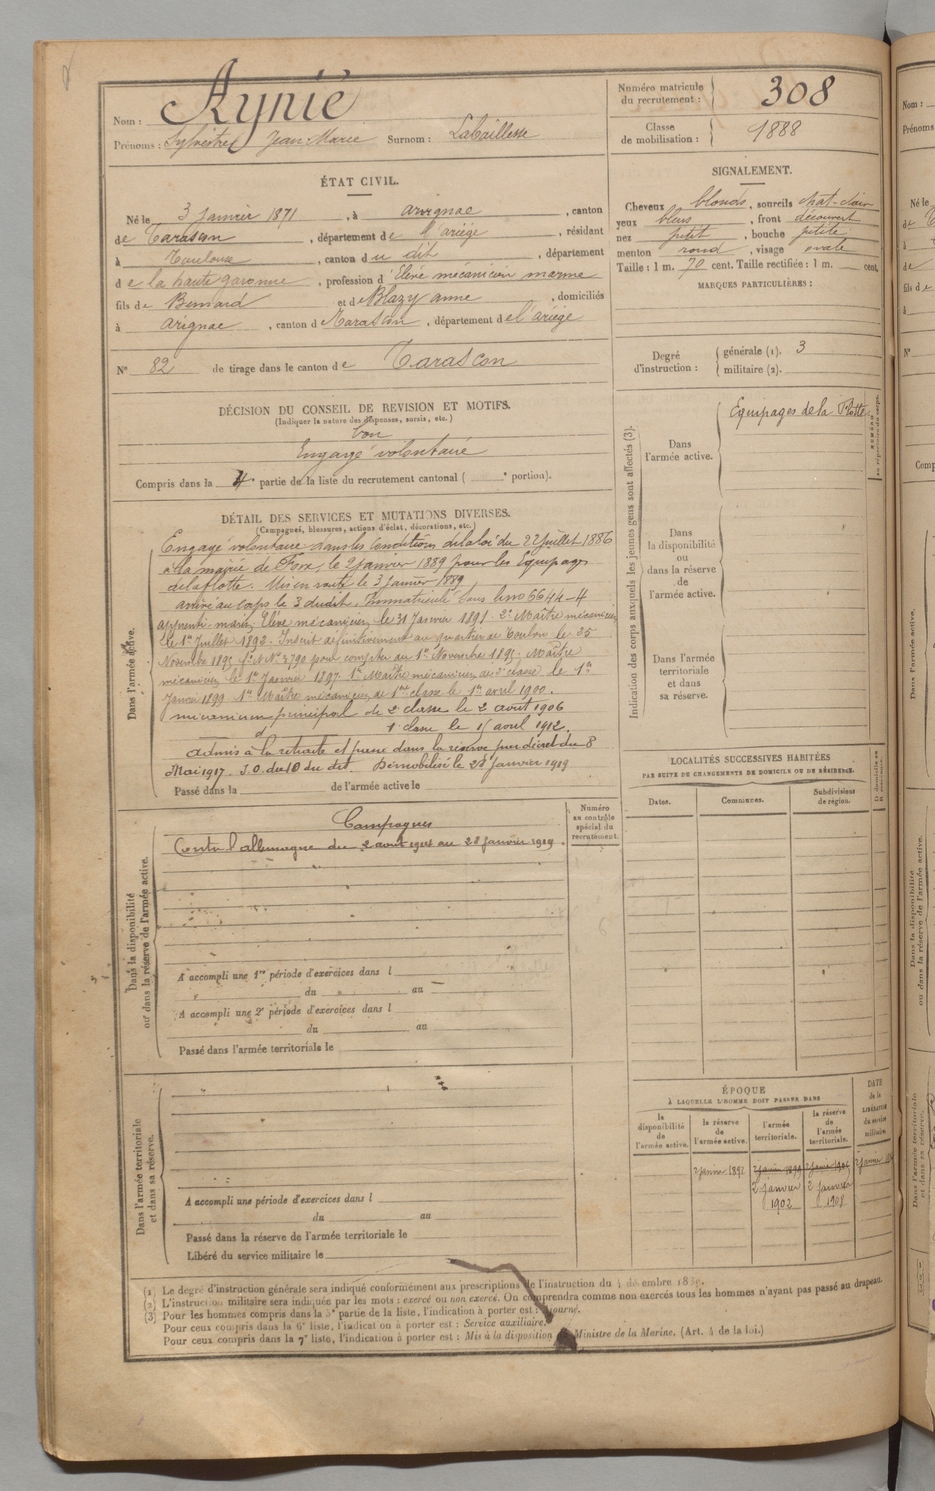 Nom : Aynié
Prénoms : Sylvestre Jean Marie Surnom : Labaillesse
Numéro matricule du recrutement : 308
Classe de mobilisation : 1888
ÉTAT CIVIL.
Né le 3 Janvier 1871, à arignac, canton
de Tarascon, département de l'ariège, résidant
à Toulouse, canton du dit, département
de la haute garonne, profession d'Elève mécanicien marine
fils de Bernard et de Blazy anne, domiciliés
à arignac, canton de Tarascon, département de l'ariège
N° 82 de tirage dans le canton de Tarascon
SIGNALEMENT.
Cheveux blonds, sourcils chat-clair
yeux bleus, front découvert
nez petit, bouche petite
menton rond, visage ovale
Taille : 1 m. 70 cent. Taille rectifiée : 1 m. cent.
MARQUES PARTICULIÈRES :
Degré d'instruction : générale (1). 3
militaire (2).
DÉCISION DU CONSEIL DE REVISION ET MOTIFS.
(Indiquer la nature des dispenses, sursis, etc.)
bon
Engagé volontaire
Compris dans la 4e partie de la liste du recrutement cantonal ( e portion).
DÉTAIL DES SERVICES ET MUTATIONS DIVERSES.
(Campagnes, blessures, actions d'éclat, décorations, etc.)
Dans l'armée active.
Engagé volontaire dans les conditions de la loi du 22 Juillet 1886
à la mairie de Foix, le 2 Janvier 1889 pour les Equipages
de la flotte. Mis en route le 3 Janvier 1889
arrivé au corps le 3 dudit. Immatriculé sous le no 6644-4
apprenti-marin, Elève mécanicien le 31 Janvier 1891. 2e Maître mécanicien
le 1er Juillet 1892. Inscrit définitivement au quartier de Toulon le 25
Novembre 1895 N° 3790 pour compter du 1er Novembre 1895. Maître
mécanicien le 1er Janvier 1897. 1er Maître mécanicien de 2e classe le 1er
Janvier 1899 1er Maître mécanicien de 1ère classe le 1er avril 1900.
mécanicien principal de 2e classe le 2 août 1906
d° 1e classe le 15 avril 1912.
admis à la retraite et passé dans la réserve par décret du 8
Mai 1917. J.O. du 10 du dit. Démobilisé le 28 Janvier 1919
Passé dans la de l'armée active le
Indication des corps auxquels les jeunes gens sont affectés (3).
Dans l'armée active. Equipages de la Flotte
Dans la disponibilité ou dans la réserve de l'armée active.
Dans l'armée territoriale et dans sa réserve.
LOCALITÉS SUCCESSIVES HABITÉES
PAR SUITE DE CHANGEMENTS DE DOMICILE OU DE RÉSIDENCE.
Dates. Communes. Subdivisions de région.
Dans la disponibilité ou dans la réserve de l'armée active.
Numéro au contrôle spécial du recrutement.
Campagnes
Contre l'allemagne du 2 août 1914 au 28 Janvier 1919.
A accompli une 1re période d'exercices dans l
du au
A accompli une 2e période d'exercices dans l
du au
Passé dans l'armée territoriale le
Dans l'armée territoriale et dans sa réserve.
A accompli une période d'exercices dans l
du au
Passé dans la réserve de l'armée territoriale le
Libéré du service militaire le
ÉPOQUE
À LAQUELLE L'HOMME DOIT PASSER DANS
la disponibilité de l'armée active. la réserve de l'armée active. l'armée territoriale. la réserve de l'armée territoriale. DATE de la LIBÉRATION du service militaire.
2 janvier 1892 2 janvier 1899
2 janvier 1902 2 janvier 1908
(1) Le degré d'instruction générale sera indiqué conformément aux prescriptions de l'instruction du 4 décembre
(2) L'instruction militaire sera indiquée par les mots : exercé ou non exercé. On comprendra comme non exercés tous les hommes n'ayant pas passé au drapeau.
(3) Pour les hommes compris dans la 5e partie de la liste, l'indication à porter est : Ajourné.
Pour ceux compris dans la 6e liste, l'indication à porter est : Service auxiliaire.
Pour ceux compris dans la 7e liste, l'indication à porter est : Mis à la disposition du Ministre de la Marine. (Art. 4 de la loi.)